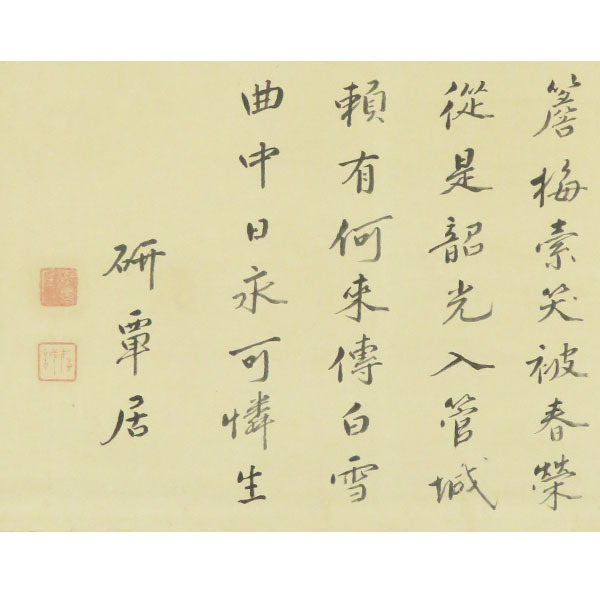 簷梅索笑被春榮
從是韶光入管城
賴有何來傳白雪
曲中日永可憐生
研覃居